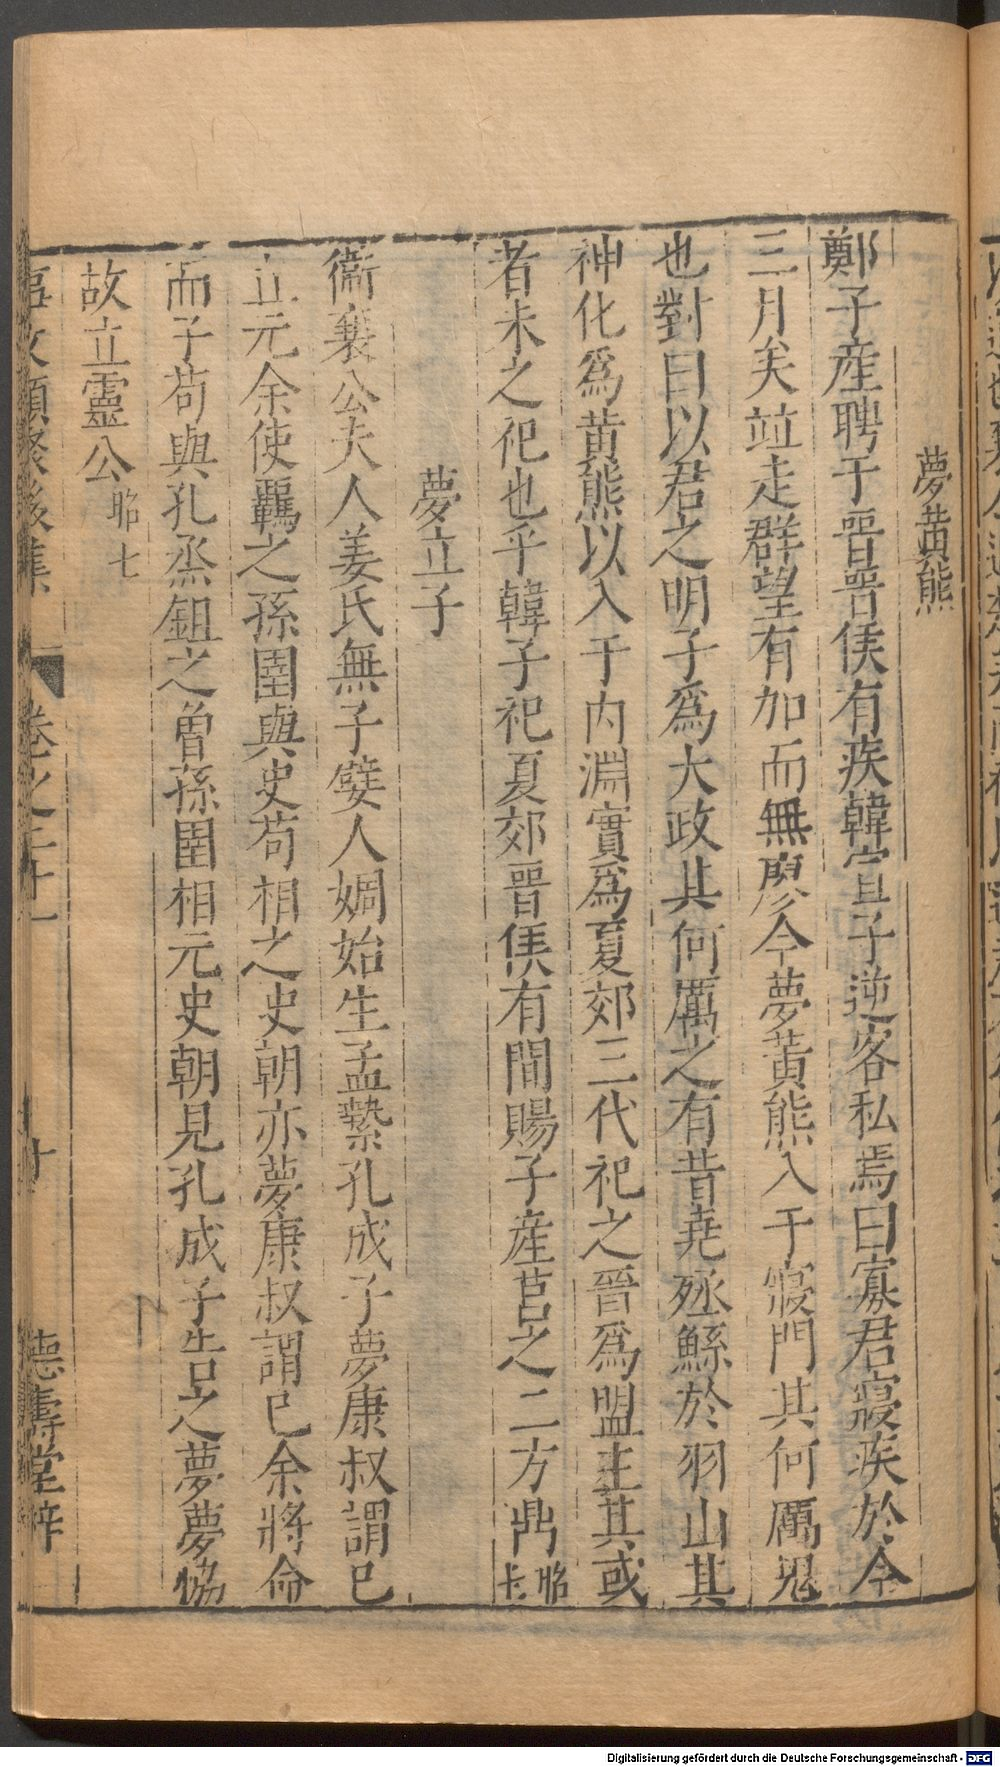 夢黄熊
鄭子産聘于晋晋侯有疾韓宣子逆客私焉曰寡君寢疾於今
三月矣竝走群望有加而無廖今夢黃熊入于寢門其何厲鬼
也對曰以君之明子爲大政其何厲之有昔堯殛鯀於羽山其
神化爲黄熊以入于内淵實爲夏郊三代祀之晋爲盟主其或
者未之祀也乎韓子祀夏郊晋侯有間賜子産莒之二方鼎昭七
夢立子
衞襄公夫人姜氏無子嬖人婤始生孟縶孔成子夢康叔謂已
立元余使羈之孫圉與史苟相之史朝亦夢康叔謂已余將命
而子苟與孔烝鉏之曽孫圉相元史朝見孔成子告之夢夢協
故立靈公昭七
事文類聚後集 卷之二十一 十 德壽堂梓
Digitalisierung gefördert durch die Deutsche Forschungsgemeinschaft - DFG